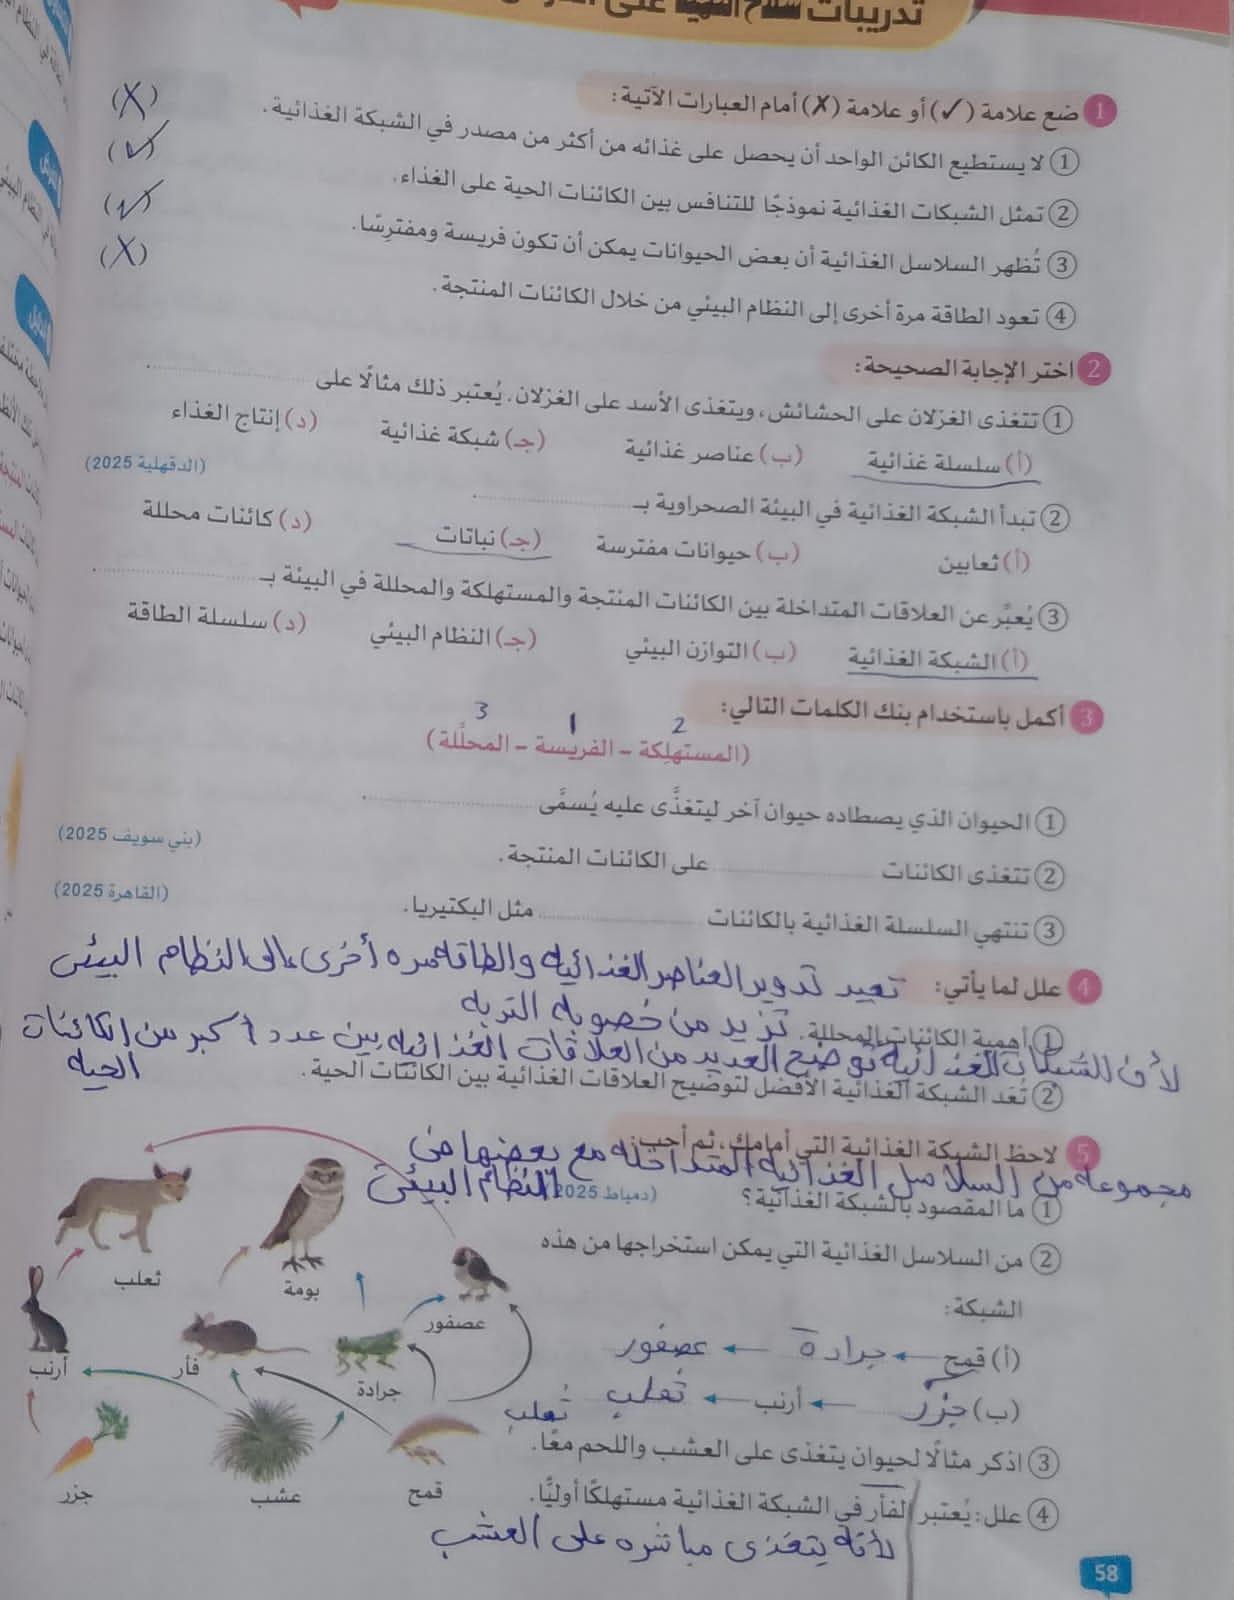 تدريبات سلاح التلميذ على الدرس
1 ضع علامة (✓) أو علامة (✗) أمام العبارات الآتية:
① لا يستطيع الكائن الواحد أن يحصل على غذائه من أكثر من مصدر في الشبكة الغذائية. (X)
② تمثل الشبكات الغذائية نموذجًا للتنافس بين الكائنات الحية على الغذاء. (✓)
③ تُظهر السلاسل الغذائية أن بعض الحيوانات يمكن أن تكون فريسة ومفترسًا. (✓)
④ تعود الطاقة مرة أخرى إلى النظام البيئي من خلال الكائنات المنتجة. (X)
2 اختر الإجابة الصحيحة:
① تتغذى الغزلان على الحشائش، ويتغذى الأسد على الغزلان. يُعتبر ذلك مثالًا على ..........
(أ) سلسلة غذائية (ب) عناصر غذائية (جـ) شبكة غذائية (د) إنتاج الغذاء
② تبدأ الشبكة الغذائية في البيئة الصحراوية بـ .......... (الدقهلية 2025)
(أ) ثعابين (ب) حيوانات مفترسة (جـ) نباتات (د) كائنات محللة
③ يُعبَّر عن العلاقات المتداخلة بين الكائنات المنتجة والمستهلكة والمحللة في البيئة بـ ..........
(أ) الشبكة الغذائية (ب) التوازن البيئي (جـ) النظام البيئي (د) سلسلة الطاقة
3 أكمل باستخدام بنك الكلمات التالي:
2 1 3
(المستهلِكة – الفريسة – المحلِّلة)
① الحيوان الذي يصطاده حيوان آخر ليتغذَّى عليه يُسمَّى ..........
② تتغذى الكائنات .......... على الكائنات المنتجة. (بني سويف 2025)
③ تنتهي السلسلة الغذائية بالكائنات .......... مثل البكتيريا. (القاهرة 2025)
4 علل لما يأتي: تعيد تدوير العناصر الغذائيه والطاقه مره أخرى إلى النظام البيئى
① أهمية الكائنات المحللة. تزيد من خصوبه التربه
لأن الشبكات الغذائيه توضح العديد من العلاقات الغذائيه بين عدد أكبر من الكائنات
الحيه
② تُعَد الشبكة الغذائية الأفضل لتوضيح العلاقات الغذائية بين الكائنات الحية.
5 لاحظ الشبكة الغذائية التي أمامك، ثم أجب:
مجموعه من السلاسل الغذائيه المتداخله مع بعضها فى
النظام البيئى
① ما المقصود بالشبكة الغذائية؟ (دمياط 2025)
② من السلاسل الغذائية التي يمكن استخراجها من هذه
الشبكة:
(أ) قمح ← جرادة ← عصفور
(ب) جزر ← أرنب ← ثعلب
ثعلب
③ اذكر مثالًا لحيوان يتغذى على العشب واللحم معًا.
④ علل: يُعتبر الفأر في الشبكة الغذائية مستهلكًا أوليًّا.
لأنه يتغذى مباشره على العشب
ثعلب
بومة
عصفور
أرنب
فأر
جرادة
جزر
عشب
قمح
58